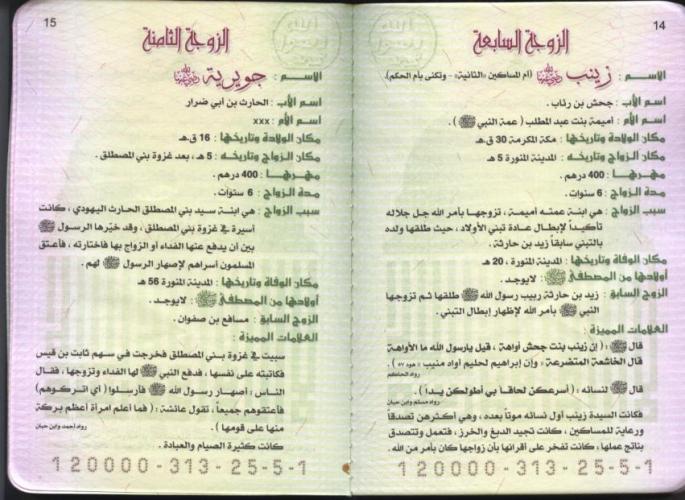 14
الزوجة السابعة
الاسم : زينب رضي الله عنها (أم المساكين «الثانية» - وتكنى بأم الحكم).
اسم الأب : جحش بن رئاب .
اسم الأم : أميمة بنت عبد المطلب ( عمة النبي ﷺ ) .
مكان الولادة وتاريخها : مكة المكرمة 30 ق.هـ
مكان الزواج وتاريخه : المدينة المنورة 5 هـ
مهرها : 400 درهم .
مدة الزواج : 6 سنوات .
سبب الزواج : هي ابنة عمته أميمة ، تزوجها بأمر الله جل جلاله
تأكيداً لإبطال عادة تبني الأولاد ، حيث طلقها ولده
بالتبني سابقاً زيد بن حارثة .
مكان الوفاة وتاريخها : المدينة المنورة ، 20 هـ
أولادها من المصطفى ﷺ : لايوجد .
الزوج السابق : زيد بن حارثة ربيب رسول الله ﷺ طلقها ثم تزوجها
النبي ﷺ بأمر الله لإظهار إبطال التبني .
العلامات المميزة :
قال ﷺ : ( إن زينب بنت جحش أواهة ، قيل يارسول الله ما الأواهة
قال الخاشعة المتضرعة «وإن إبراهيم لحليم أواه منيب» «هود ٧٥» ) .
رواه الحاكم
قال ﷺ لنسائه : ( أسرعكن لحاقا بي أطولكن يداً ) .
رواه مسلم وابن حبان
فكانت السيدة زينب أول نسائه موتاً بعده ، وهي أكثرهن تصدقاً
ورعاية للمساكين ، كانت تجيد الدبغ والخرز ، فتعمل وتتصدق
بناتج عملها ، كانت تفخر على أقرانها بأن زوجها كان بأمر من الله .
120000-313-25-5-1
15
الزوجة الثامنة
الاسم : جويرية رضي الله عنها
اسم الأب : الحارث بن أبي ضرار
اسم الأم : xxx
مكان الولادة وتاريخها : 16 ق.هـ
مكان الزواج وتاريخه : 5 هـ ، بعد غزوة بني المصطلق .
مهرها : 400 درهم .
مدة الزواج : 6 سنوات .
سبب الزواج : هي ابنة سيد بني المصطلق الحارث اليهودي ، كانت
أسيرة في غزوة بني المصطلق ، وقد خيّرها الرسول ﷺ
بين أن يدفع عنها الفداء أو الزواج بها فاختارته ، فأعتق
المسلمون أسراهم لإصهار الرسول ﷺ لهم .
مكان الوفاة وتاريخها : المدينة المنورة 56 هـ
أولادها من المصطفى ﷺ : لايوجد .
الزوج السابق : مسافع بن صفوان .
العلامات المميزة :
سبيت في غزوة بني المصطلق فخرجت في سهم ثابت بن قيس
فكاتبته على نفسها ، فدفع النبي ﷺ لها الفداء وتزوجها ، فقال
الناس : أصهار رسول الله ﷺ فأرسلوا ( أي اتركوهم )
فأعتقوهم جميعاً ، تقول عائشة : ( فما أعلم امرأة أعظم بركة
منها على قومها ) .
رواه أحمد وابن حبان
كانت كثيرة الصيام والعبادة .
120000-313-25-5-1